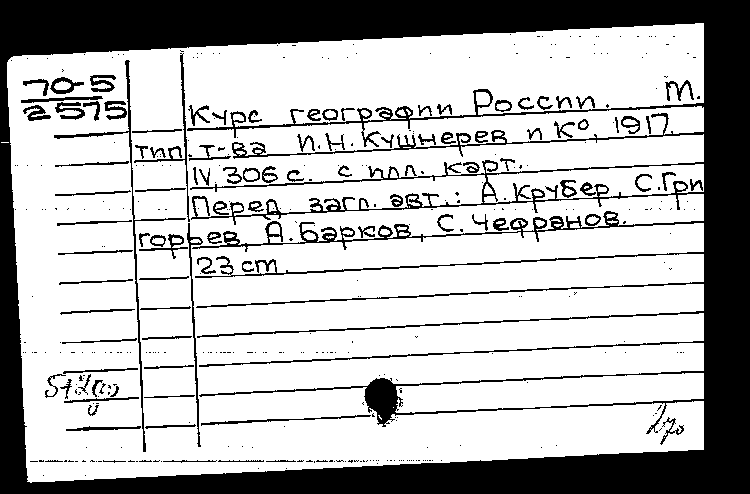 70-5
2575
Курс географии России. М.
тип. т-ва И.Н. Кушнерев и К°, 1917.
IV, 306 с. с илл., карт.
Перед загл. авт.: А. Крубер, С. Гри
горьев, А. Барков, С. Чефранов.
23 cm.
270